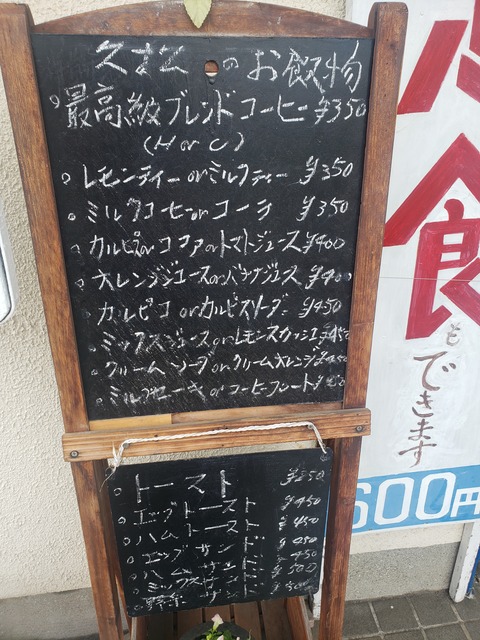 久まとのお飲物
最高級ブレンドコーヒー ¥350
(H or C)
レモンティー or ミルクティー ¥350
ミルクコーヒー or コーラ ¥350
カルピス or ココア or トマトジュース ¥400
オレンジジュース or バナナジュース ¥400
カルピコ or カルピスソーダ ¥450
ミックスジュース or レモンスカッシュ ¥450
クリームソーダ or クリームオレンジ
ミルクセーキ or コーヒーフロート
トースト ¥350
エッグトースト ¥450
ハムトースト ¥450
エッグサンド ¥450
ハムサンド ¥450
ミックスサンド ¥500
野菜サンド ¥500
食
もできます
600円